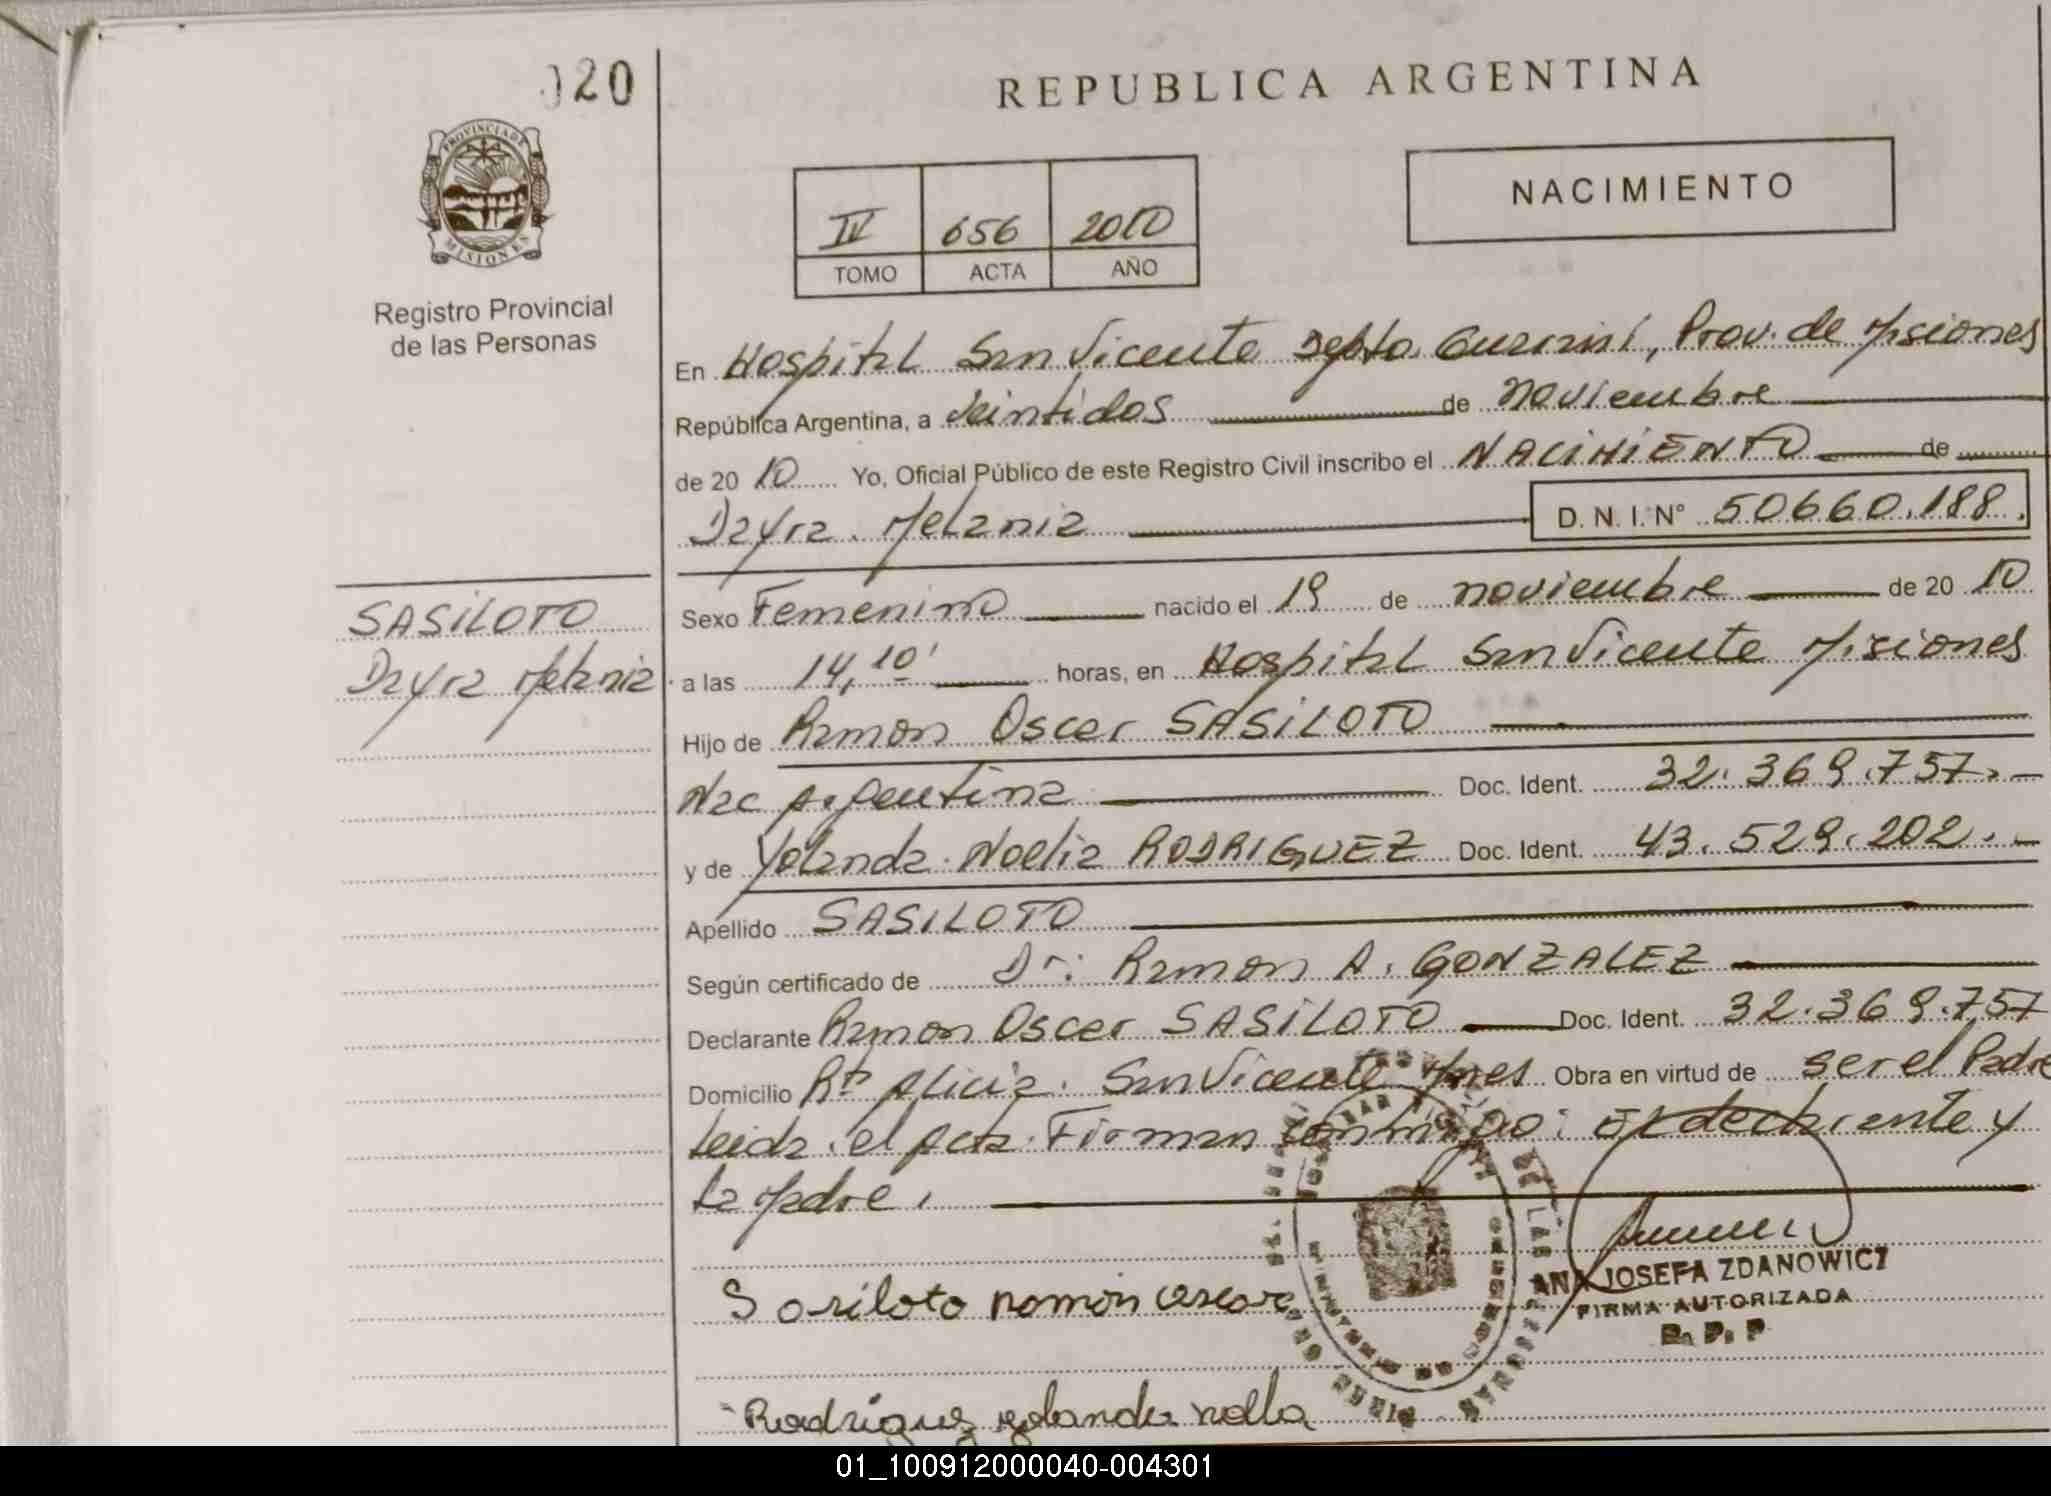 020
REPUBLICA ARGENTINA
PROVINCIA DE
MISIONES
Registro Provincial
de las Personas
IV 656 2010
TOMO ACTA AÑO
NACIMIENTO
En Hospital San Vicente Depto. Guarani, Prov. de Misiones
República Argentina, a Veintidos de noviembre
de 20 10 Yo, Oficial Público de este Registro Civil inscribo el NACIMIENTO de
Dayra Melania D. N. I. N° 50660.188.
SASILOTO
Dayra Melania
Sexo Femenino nacido el 19 de noviembre de 20 10
a las 14,10' horas, en Hospital San Vicente Misiones
Hijo de Ramon Oscar SASILOTO
Nac Argentina Doc. Ident. 32.369.757.-
y de Yolanda Noelia RODRIGUEZ Doc. Ident. 43.529.202.-
Apellido SASILOTO
Según certificado de Dr: Ramon A. GONZALEZ
Declarante Ramon Oscar SASILOTO Doc. Ident. 32.369.757
Domicilio Rto Alicia. San Vicente Mnes Obra en virtud de ser el Padre
Leida el Acta Firman conmigo: el declarante y
La Madre.
ANA JOSEFA ZDANOWICZ
FIRMA AUTORIZADA
R. P. P
Sasiloto ramon
Rodrigues yolanda
01_100912000040-004301